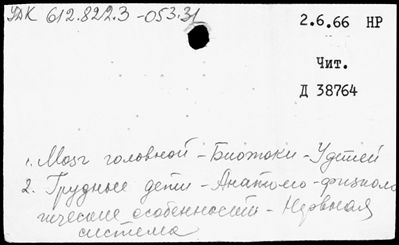 УДК 612.822.3-053.31
2.6.66 НР
Чит.
Д 38764
1. Мозг головной - Биотоки - У детей
2. Грудные дети - Анатомо-физиоло
гические особенности - Нервная
система